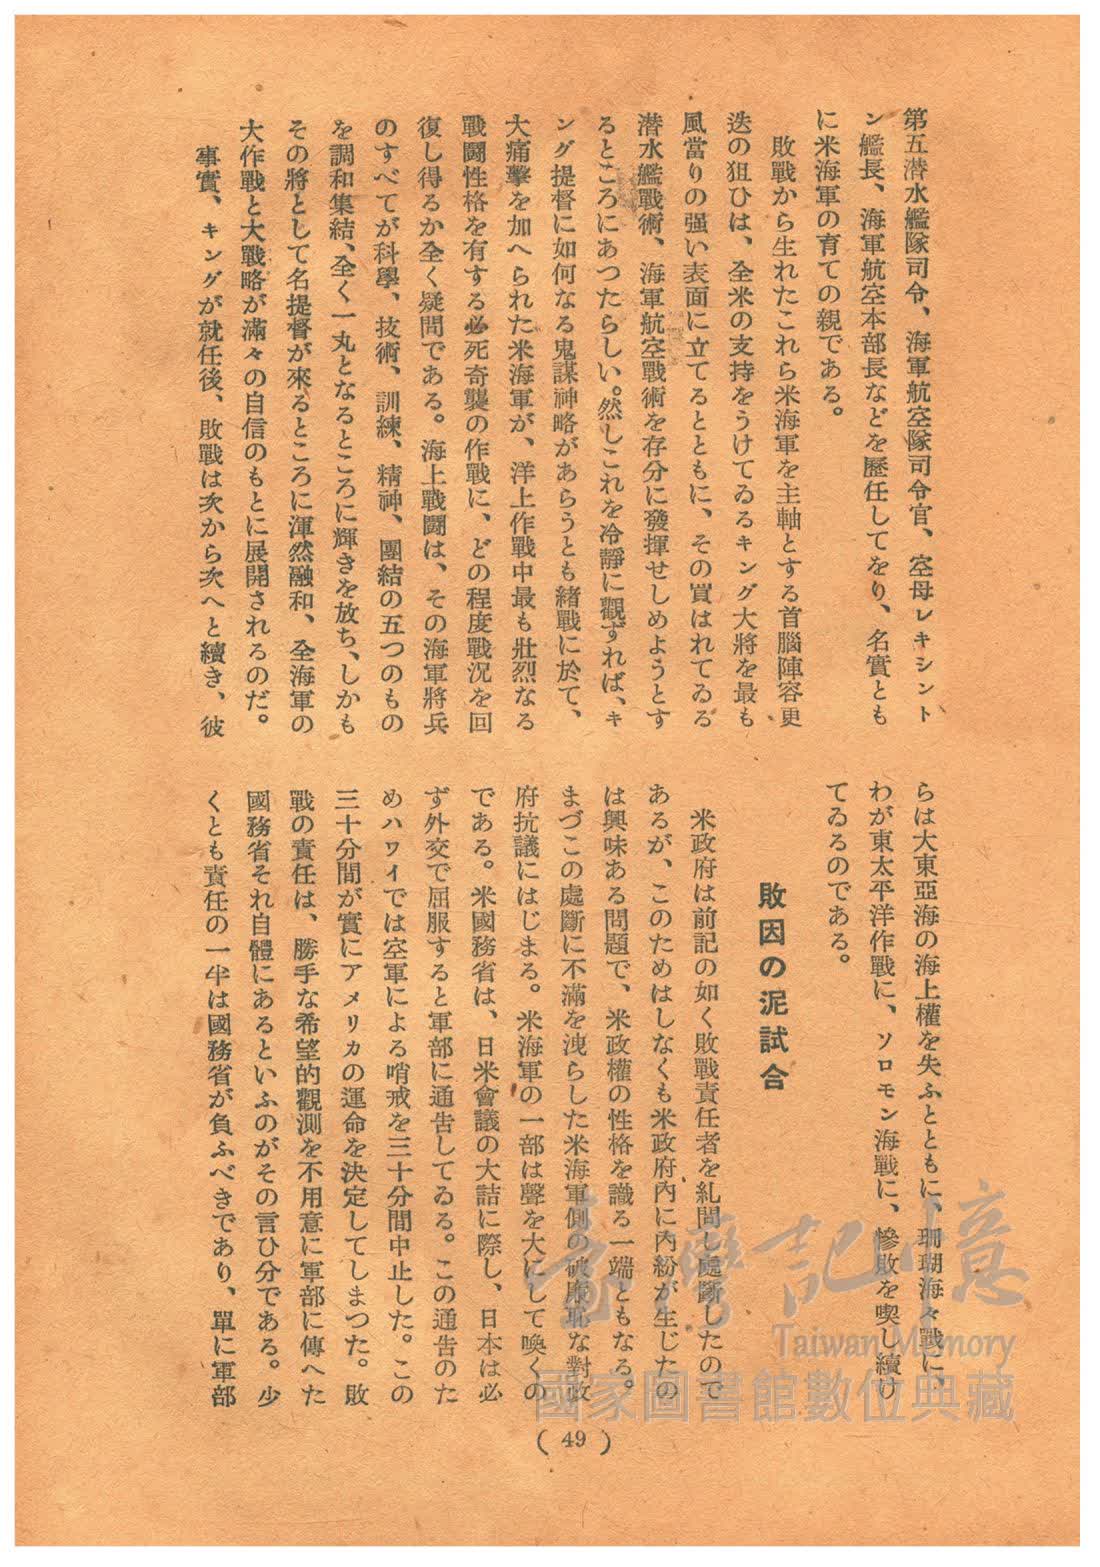 第五潜水艦隊司令、海軍航空隊司令官、空母レキシント
ン艦長、海軍航空本部長などを歷任してをり、名實とも
に米海軍の育ての親である。
敗戰から生れたこれら米海軍を主軸とする首腦陣容更
迭の狙ひは、全米の支持をうけてゐるキング大將を最も
風當りの强い表面に立てるとともに、その買はれてゐる
潜水艦戰術、海軍航空戰術を存分に發揮せしめようとす
るところにあつたらしい。然しこれを冷靜に觀ずれば、キ
ング提督に如何なる鬼謀神略があらうとも緒戰に於て、
大痛擊を加へられた米海軍が、洋上作戰中最も壯烈なる
戰鬪性格を有する必死奇襲の作戰に、どの程度戰況を回
復し得るか全く疑問である。海上戰鬪は、その海軍將兵
のすべてが科學、技術、訓練、精神、團結の五つのもの
を調和集結、全く一丸となるところに輝きを放ち、しかも
その將として名提督が來るところに渾然融和、全海軍の
大作戰と大戰略が滿々の自信のもとに展開されるのだ。
事實、キングが就任後、敗戰は次から次へと續き、彼
らは大東亞海の海上權を失ふとともに、珊瑚海々戰に、
わが東太平洋作戰に、ソロモン海戰に、慘敗を喫し續け
てゐるのである。
敗因の泥試合
米政府は前記の如く敗戰責任者を糺問し處斷したので
あるが、このためはしなくも米政府內に內紛が生じたの
は興味ある問題で、米政權の性格を識る一端ともなる。
まづこの處斷に不滿を洩らした米海軍側の破廉恥な對政
府抗議にはじまる。米海軍の一部は聲を大にして喚くの
である。米國務省は、日米會議の大詰に際し、日本は必
ず外交で屈服すると軍部に通告してゐる。この通告のた
めハワイでは空軍による哨戒を三十分間中止した。この
三十分間が實にアメリカの運命を決定してしまつた。敗
戰の責任は、勝手な希望的觀測を不用意に軍部に傳へた
國務省それ自體にあるといふのがその言ひ分である。少
くとも責任の一半は國務省が負ふべきであり、單に軍部
( 49 )
臺灣記憶
Taiwan Memory
國家圖書館數位典藏